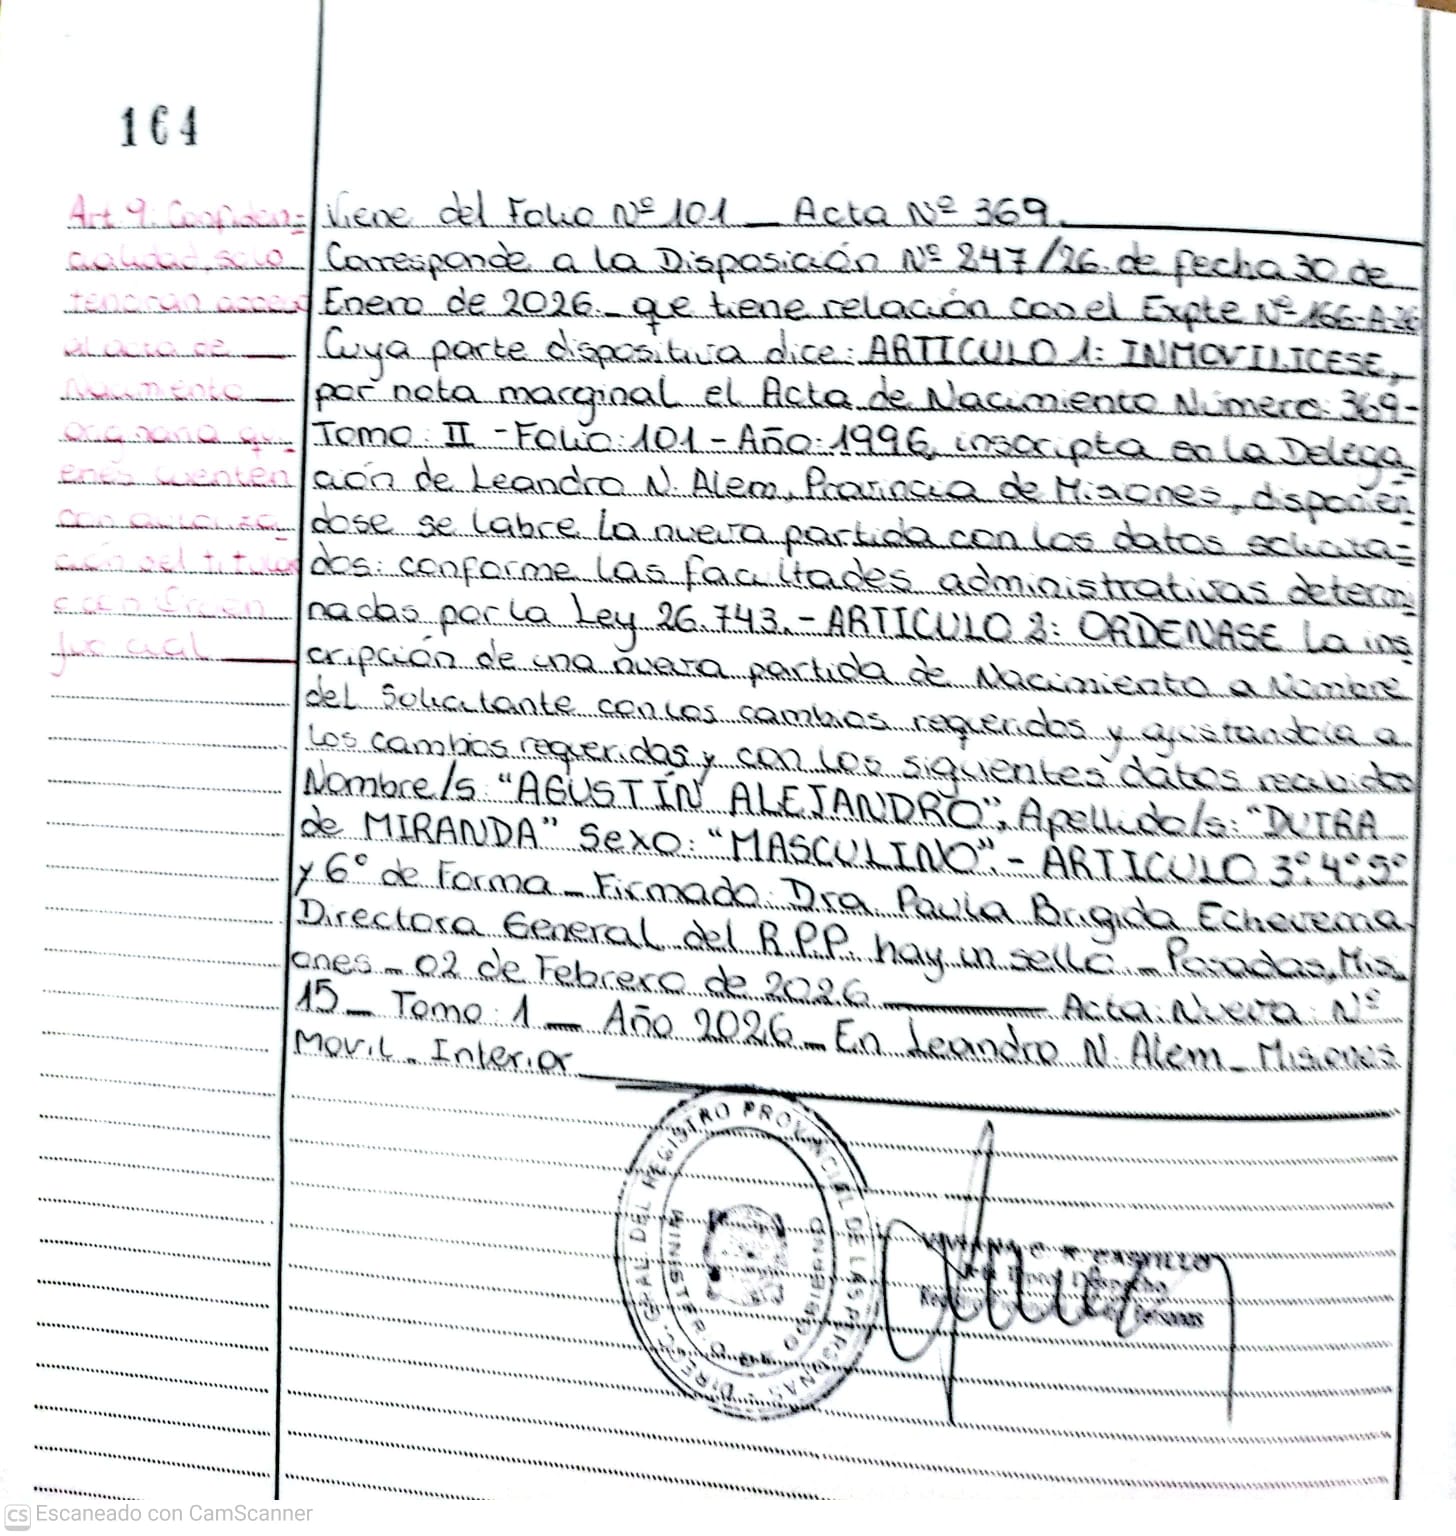 164
Art 9. Confiden=
cialidad, solo
tendran acceso
al acta de
Nacimiento
originaria qui
enes cuenten
con autoriza
ción del titular
o con orden
judicial
Viene del Folio Nº 101 _ Acta Nº 369.
Corresponde a la Disposición Nº 247/26. de fecha 30 de
Enero de 2026._ que tiene relación con el Expte Nº 166-A-26
Cuya parte dispositiva dice: ARTICULO 1: INMOVILICESE,
por nota marginal el Acta de Nacimiento Número: 369-
Tomo: II - Folio: 101 - Año: 1996, inscripta en la Delega=
ción de Leandro N. Alem, Provincia de Misiones, disponien
dose se labre la nueva partida con los datos solicita=
dos: conforme las facultades administrativas determi
nadas por la Ley 26.743.- ARTICULO 2: ORDENASE la ins
cripción de una nueva partida de Nacimiento a Nombre
del Solicitante con los cambios requeridos y ajustandola a
los cambios requeridos y con los siguientes datos recibidos
Nombre/s: "AGUSTÍN ALEJANDRO"; Apellido/s: "DUTRA
de MIRANDA" Sexo: "MASCULINO".- ARTICULO 3º, 4º, 5º
y 6º de Forma _ Firmado: Dra. Paula Brigida Echeverria
Directora General del R.P.P. hay un sello _ Posadas, Mis
ones _ 02 de Febrero de 2026 _ Acta: Nueva: Nº
15 _ Tomo: 1 _ Año 2026 _ En Leandro N. Alem _ Misiones
Movil. Interior
DIREC. GRAL DEL REGISTRO PROVINCIAL DE LAS PERSONAS
MINISTERIO DE GOBIERNO
CASTILLO
Personas
CS Escaneado con CamScanner